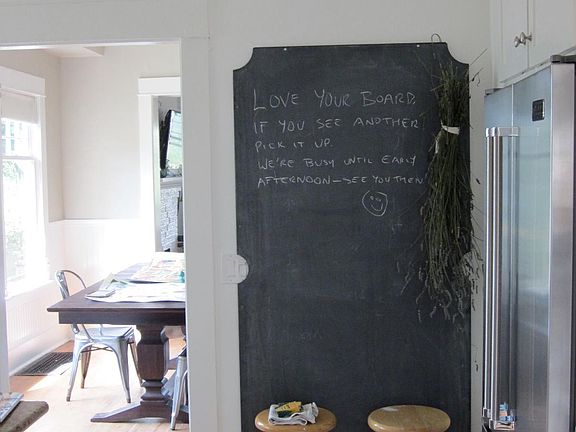 LOVE YOUR BOARD.
IF YOU SEE ANOTHER
PICK IT UP.
WE'RE BUSY UNTIL EARLY
AFTERNOON—SEE YOU THEN